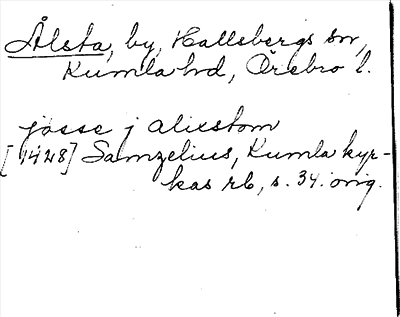 Ålsta, by, Hallsbergs sn,
Kumla hd, Örebro l.
jösse j alixstom
[1428] Samzelius, Kumla kyr-
kas rb, s. 34. orig.